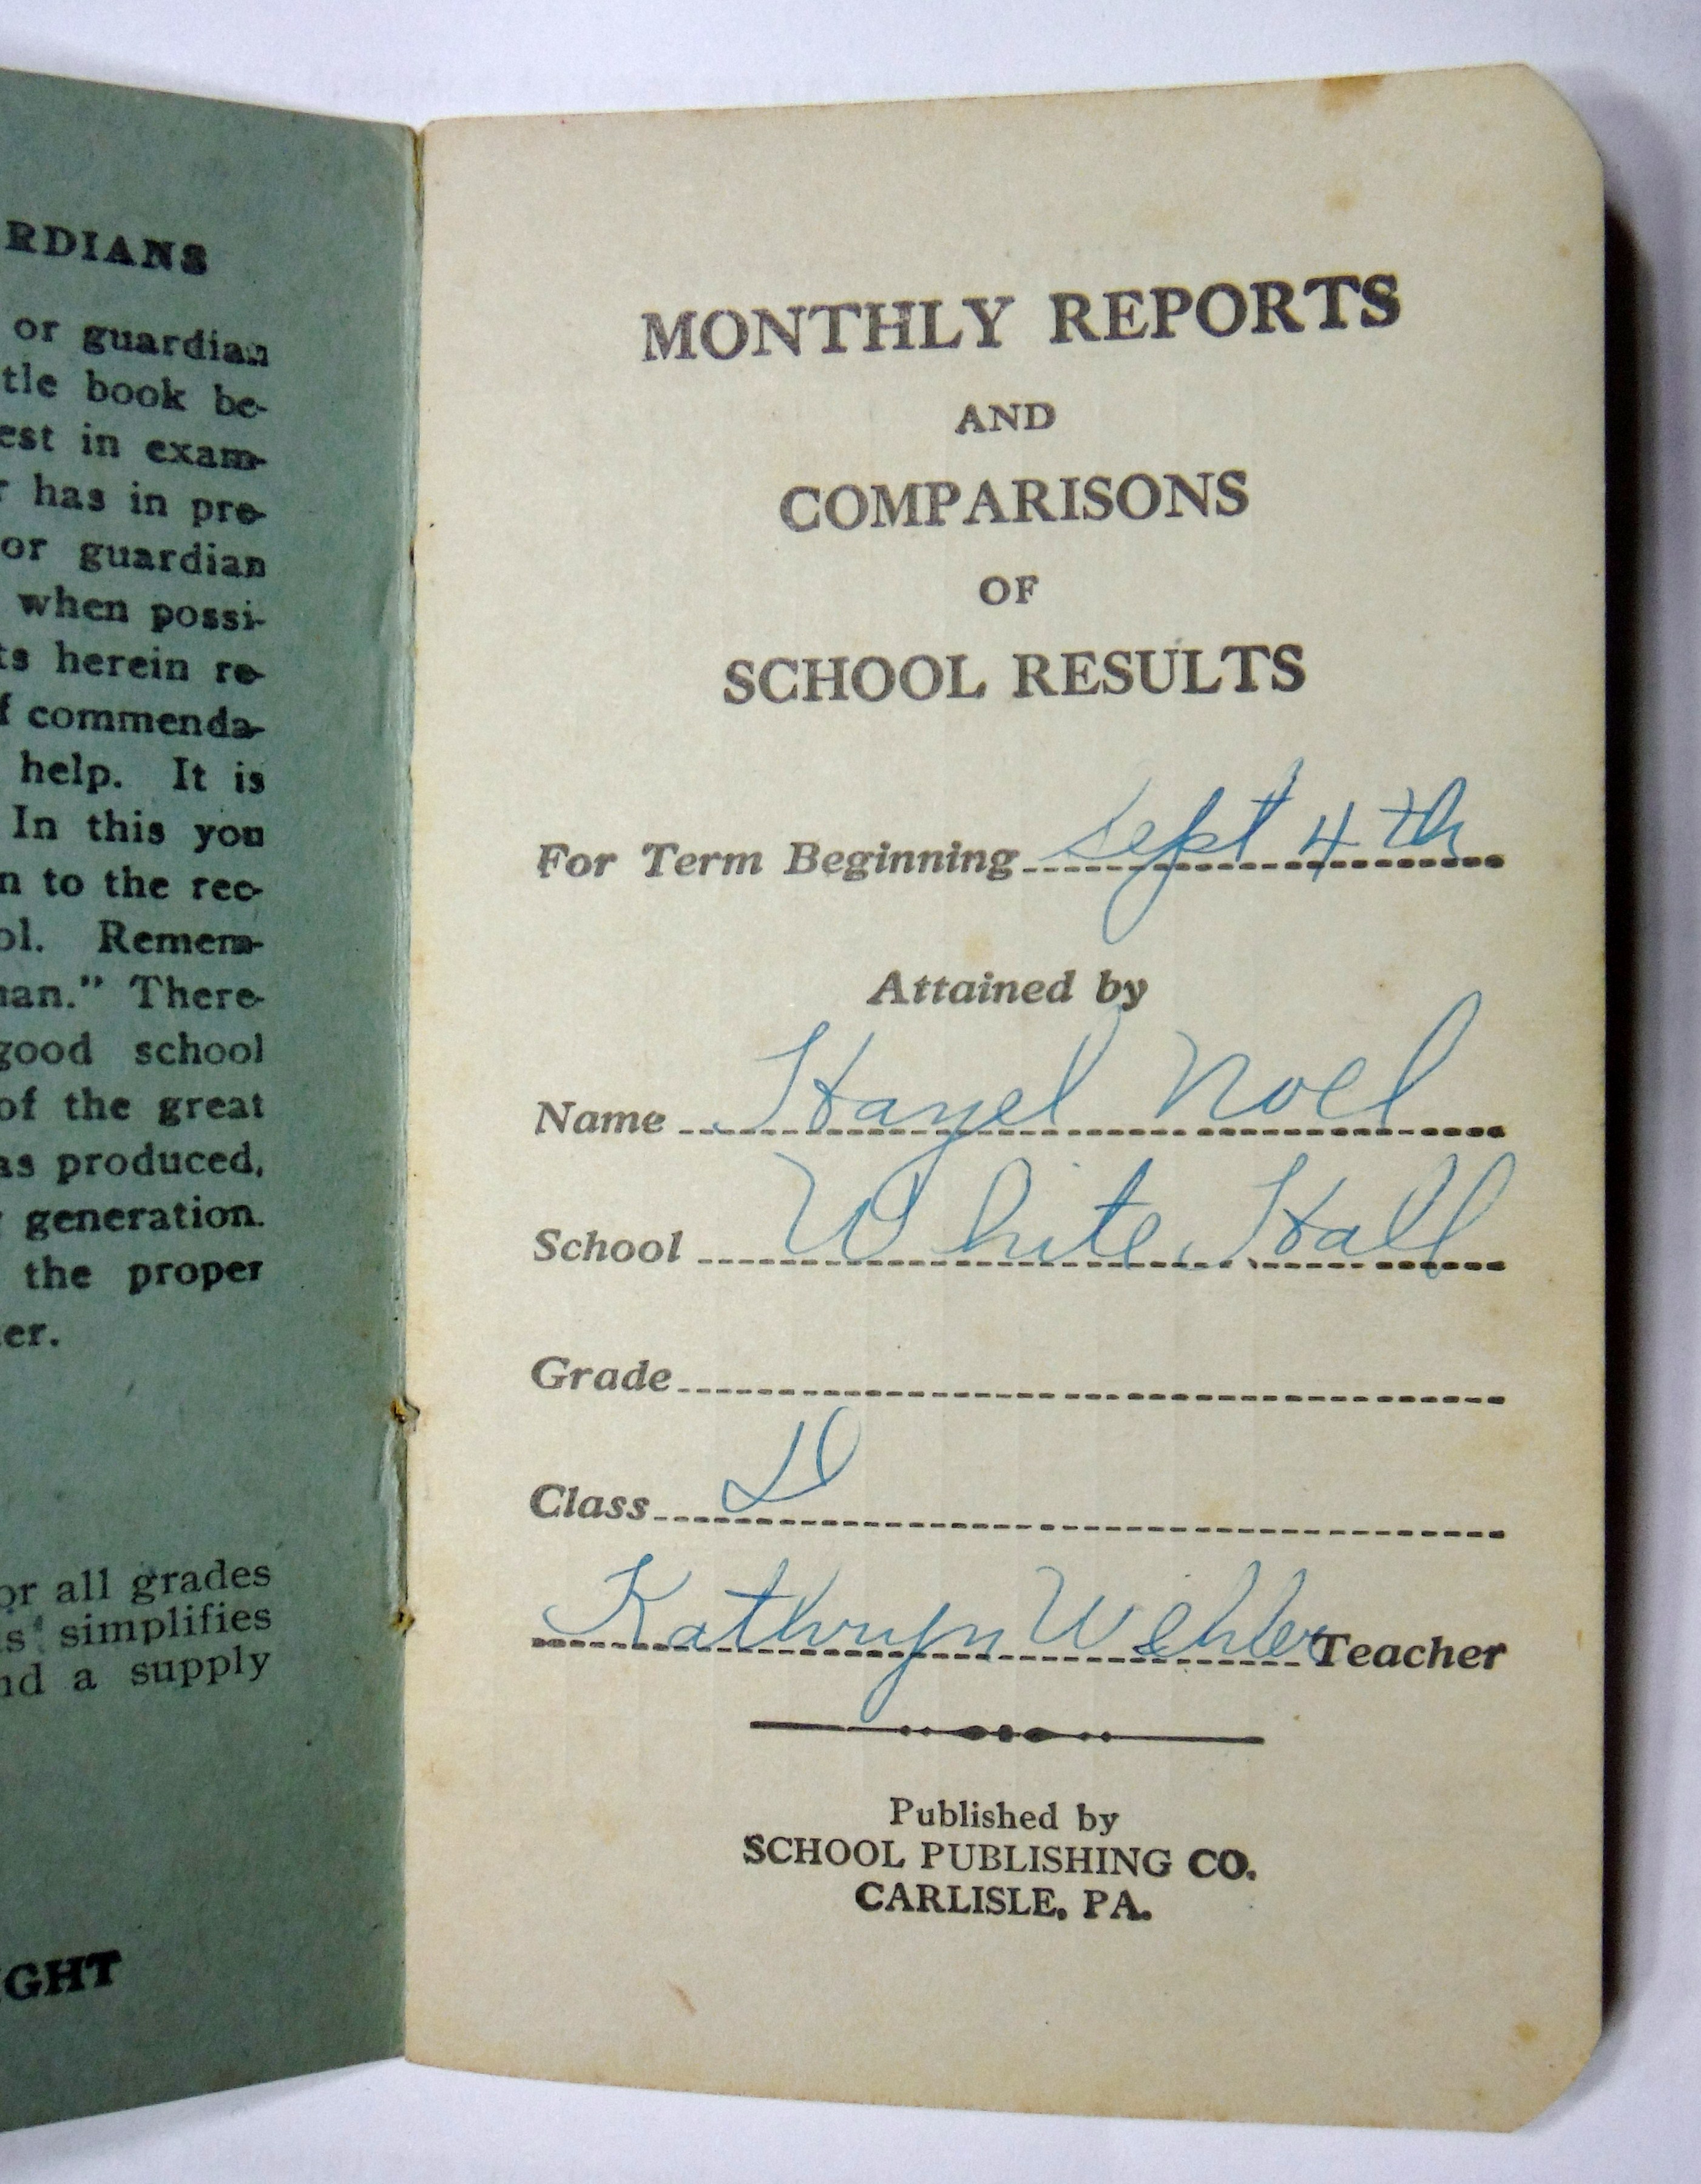 RDIANS
or guardian
tle book be-
est in exam-
r has in pre-
or guardian
when possi-
ts herein re-
f commenda-
help. It is
In this you
n to the rec-
ol. Remem-
nan." There-
good school
of the great
as produced,
generation.
the proper
er.
or all grades
s simplifies
nd a supply
IGHT
MONTHLY REPORTS
AND
COMPARISONS
OF
SCHOOL RESULTS
For Term Beginning Sept 4th
Attained by
Name Hazel Noel
School White Hall
Grade
Class D
Kathryn Wehler Teacher
Published by
SCHOOL PUBLISHING CO.
CARLISLE, PA.